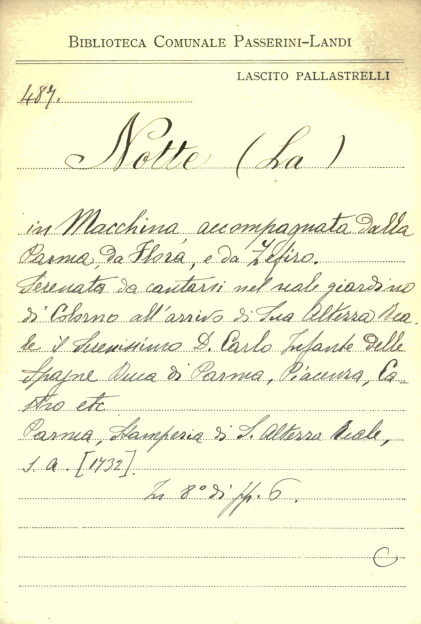 BIBLIOTECA COMUNALE PASSERINI-LANDI
LASCITO PALLASTRELLI
487.
Notte (La)
in Macchina accompagnata dalla
Parma, da Flora, e da Zefiro.
Serenata da cantarsi nel reale giardino
di Colorno all'arrivo di Sua Altezza Rea-
le il Serenissimo D. Carlo Infante delle
Spagne Duca di Parma, Piacenza, Ca-
stro etc
Parma, Stamperia di S. Altezza Reale,
s. a. [1732].
In 8° di pp. 6.
C